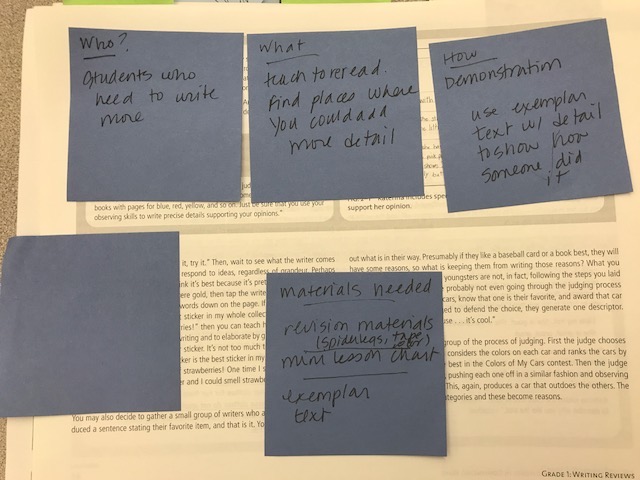 Who?
Students who
need to write
more
What
teach to reread.
Find places where
you could add
more detail
How
Demonstration
use exemplar
text w/ detail
to show how
someone did
it
books with pages for blue, red, yellow, and so on. Just be sure that you use your
observing skills to write precise details supporting your opinions."
support her opinion.
it, try it." Then, wait to see what the writer comes
respond to ideas, regardless of grandeur. Perhaps
nk it's best because it's
ere gold, then tap the write
words down on the page. If
sticker in my whole collec
ries!" then you can teach h
writing and to elaborate by g
sticker. It's not too much t
ker is the best sticker in my
strawberries! One time I s
er and I could smell strawbe
You may also decide to gather a small group of writers who a
duced a sentence stating their favorite item, and that is it. Yo
Materials needed
revision materials
(spiderlegs, tape
mini lesson chart
exemplar
text
out what is in their way. Presumably if they like a baseball card or a book best, they will
have some reasons, so what is keeping them from writing those reasons? What you
youngsters are not, in fact, following the steps you laid
probably not even going through the judging process
cars, know that one is their favorite, and award that car
ed to defend the choice, they generate one descriptor.
use . . . it's cool."
group of the process of judging. First the judge chooses
considers the colors on each car and ranks the cars by
best in the Colors of My Cars contest. Then the judge
pushing each one off in a similar fashion and observing
This, again, produces a car that outdoes the others. The
ategories and these become reasons.
GRADE 1: WRITING REVIEWS